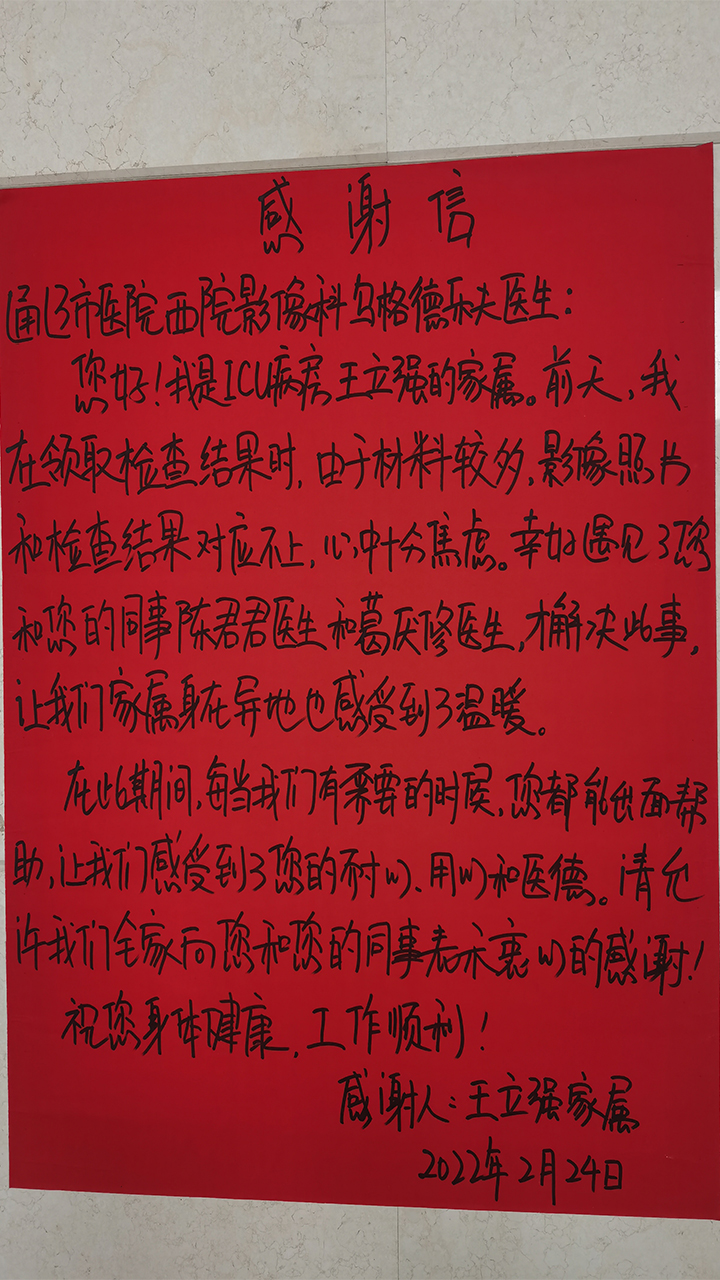 感谢信
通辽市医院西院影像科乌格德乐夫医生：
您好！我是ICU病房王立强的家属。前天，我
在领取检查结果时，由于材料较多，影像照片
和检查结果对应不上，心中十分焦虑。幸好遇见了您
和您的同事陈君君医生和葛庆修医生，才解决此事，
让我们家属身在异地也感受到了温暖。
在此期间，每当我们有需要的时候，您都能出面帮
助，让我们感受到了您的耐心、用心和医德。请允
许我们全家向您和您的同事表示衷心的感谢！
祝您身体健康，工作顺利！
感谢人：王立强家属
2022年2月24日